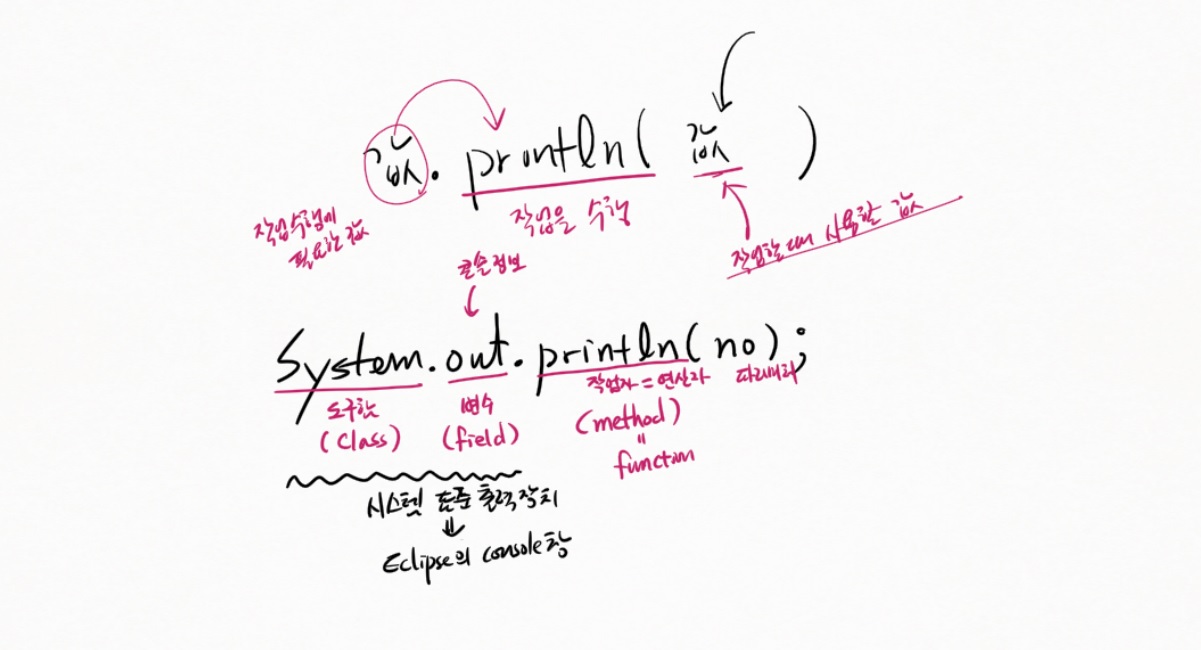 값.println( 값 )
작업수행에
필요한 값
작업을 수행
작업할 때 사용할 값
콘솔정보
System.out.println(no);
도구함
(class)
변수
(field)
작업자 = 연산자
(method)
"
function
파라미터
시스템 표준 출력 장치
⇓
Eclipse의 console창